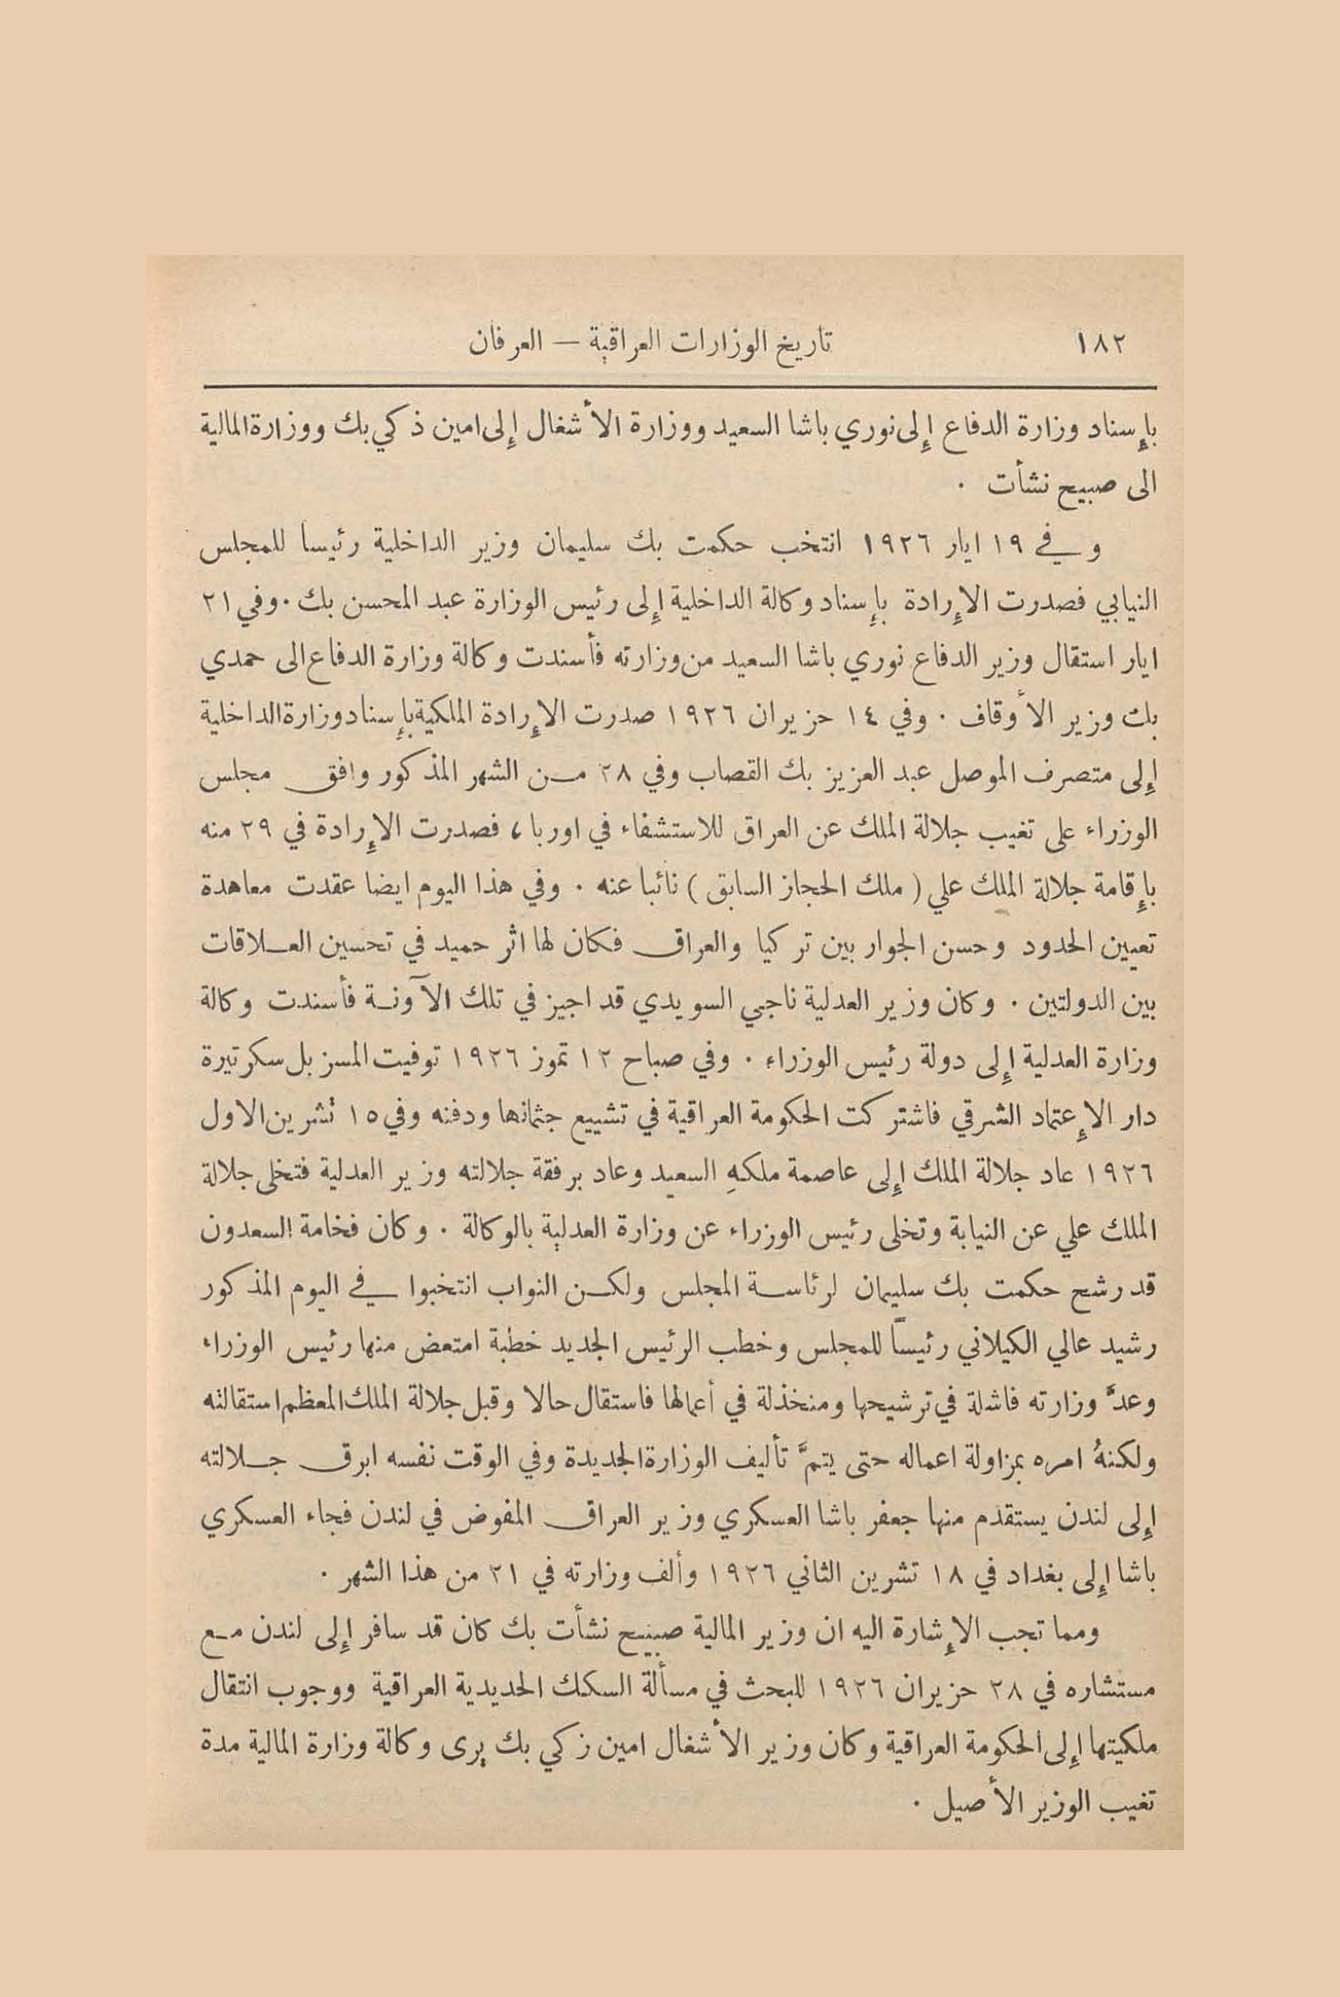 ١٨٢
تاريخ الوزارات العراقية — العرفان
بإسناد وزارة الدفاع إلى نوري باشا السعيد ووزارة الأشغال إلى امين ذكي بك ووزارة المالية
الى صبيح نشأت .
وفي ١٩ ايار ١٩٢٦ انتخب حكمت بك سليمان وزير الداخلية رئيسا للمجلس
النيابي فصدرت الإرادة بإسناد وكالة الداخلية إلى رئيس الوزارة عبد المحسن بك . وفي ٢١
ايار استقال وزير الدفاع نوري باشا السعيد من وزارته فأسندت وكالة وزارة الدفاع الى حمدي
بك وزير الأوقاف . وفي ١٤ حزيران ١٩٢٦ صدرت الإرادة الملكية بإسناد وزارة الداخلية
إلى متصرف الموصل عبد العزيز بك القصاب وفي ٢٨ من الشهر المذكور وافق مجلس
الوزراء على تغيب جلالة الملك عن العراق للاستشفاء في اوربا ، فصدرت الإرادة في ٢٩ منه
بإقامة جلالة الملك علي ( ملك الحجاز السابق ) نائبا عنه . وفي هذا اليوم ايضا عقدت معاهدة
تعيين الحدود وحسن الجوار بين تركيا والعراق فكان لها اثر حميد في تحسين العلاقات
بين الدولتين . وكان وزير العدلية ناجي السويدي قد اجيز في تلك الآونة فأسندت وكالة
وزارة العدلية إلى دولة رئيس الوزراء . وفي صباح ١٢ تموز ١٩٢٦ توفيت المسز بل سكرتيرة
دار الإعتماد الشرقي فاشتركت الحكومة العراقية في تشييع جثمانها ودفنه وفي ١٥ تشرين الاول
١٩٢٦ عاد جلالة الملك إلى عاصمة ملكهِ السعيد وعاد برفقة جلالته وزير العدلية فتخلى جلالة
الملك علي عن النيابة وتخلى رئيس الوزراء عن وزارة العدلية بالوكالة . وكان فخامة السعدون
قد رشح حكمت بك سليمان لرئاسة المجلس ولكن النواب انتخبوا في اليوم المذكور
رشيد عالي الكيلاني رئيسًا للمجلس وخطب الرئيس الجديد خطبة امتعض منها رئيس الوزراء
وعدَّ وزارته فاشلة في ترشيحها ومنخذلة في أعمالها فاستقال حالا وقبل جلالة الملك المعظم استقالته
ولكنهُ امره بمزاولة اعماله حتى يتمَّ تأليف الوزارة الجديدة وفي الوقت نفسه ابرق جلالته
إلى لندن يستقدم منها جعفر باشا العسكري وزير العراق المفوض في لندن فجاء العسكري
باشا إلى بغداد في ١٨ تشرين الثاني ١٩٢٦ وألف وزارته في ٢١ من هذا الشهر .
ومما تجب الإشارة اليه ان وزير المالية صبيح نشأت بك كان قد سافر إلى لندن مع
مستشاره في ٢٨ حزيران ١٩٢٦ للبحث في مسألة السكك الحديدية العراقية ووجوب انتقال
ملكيتها إلى الحكومة العراقية وكان وزير الأشغال امين زكي بك يرى وكالة وزارة المالية مدة
تغيب الوزير الأصيل .